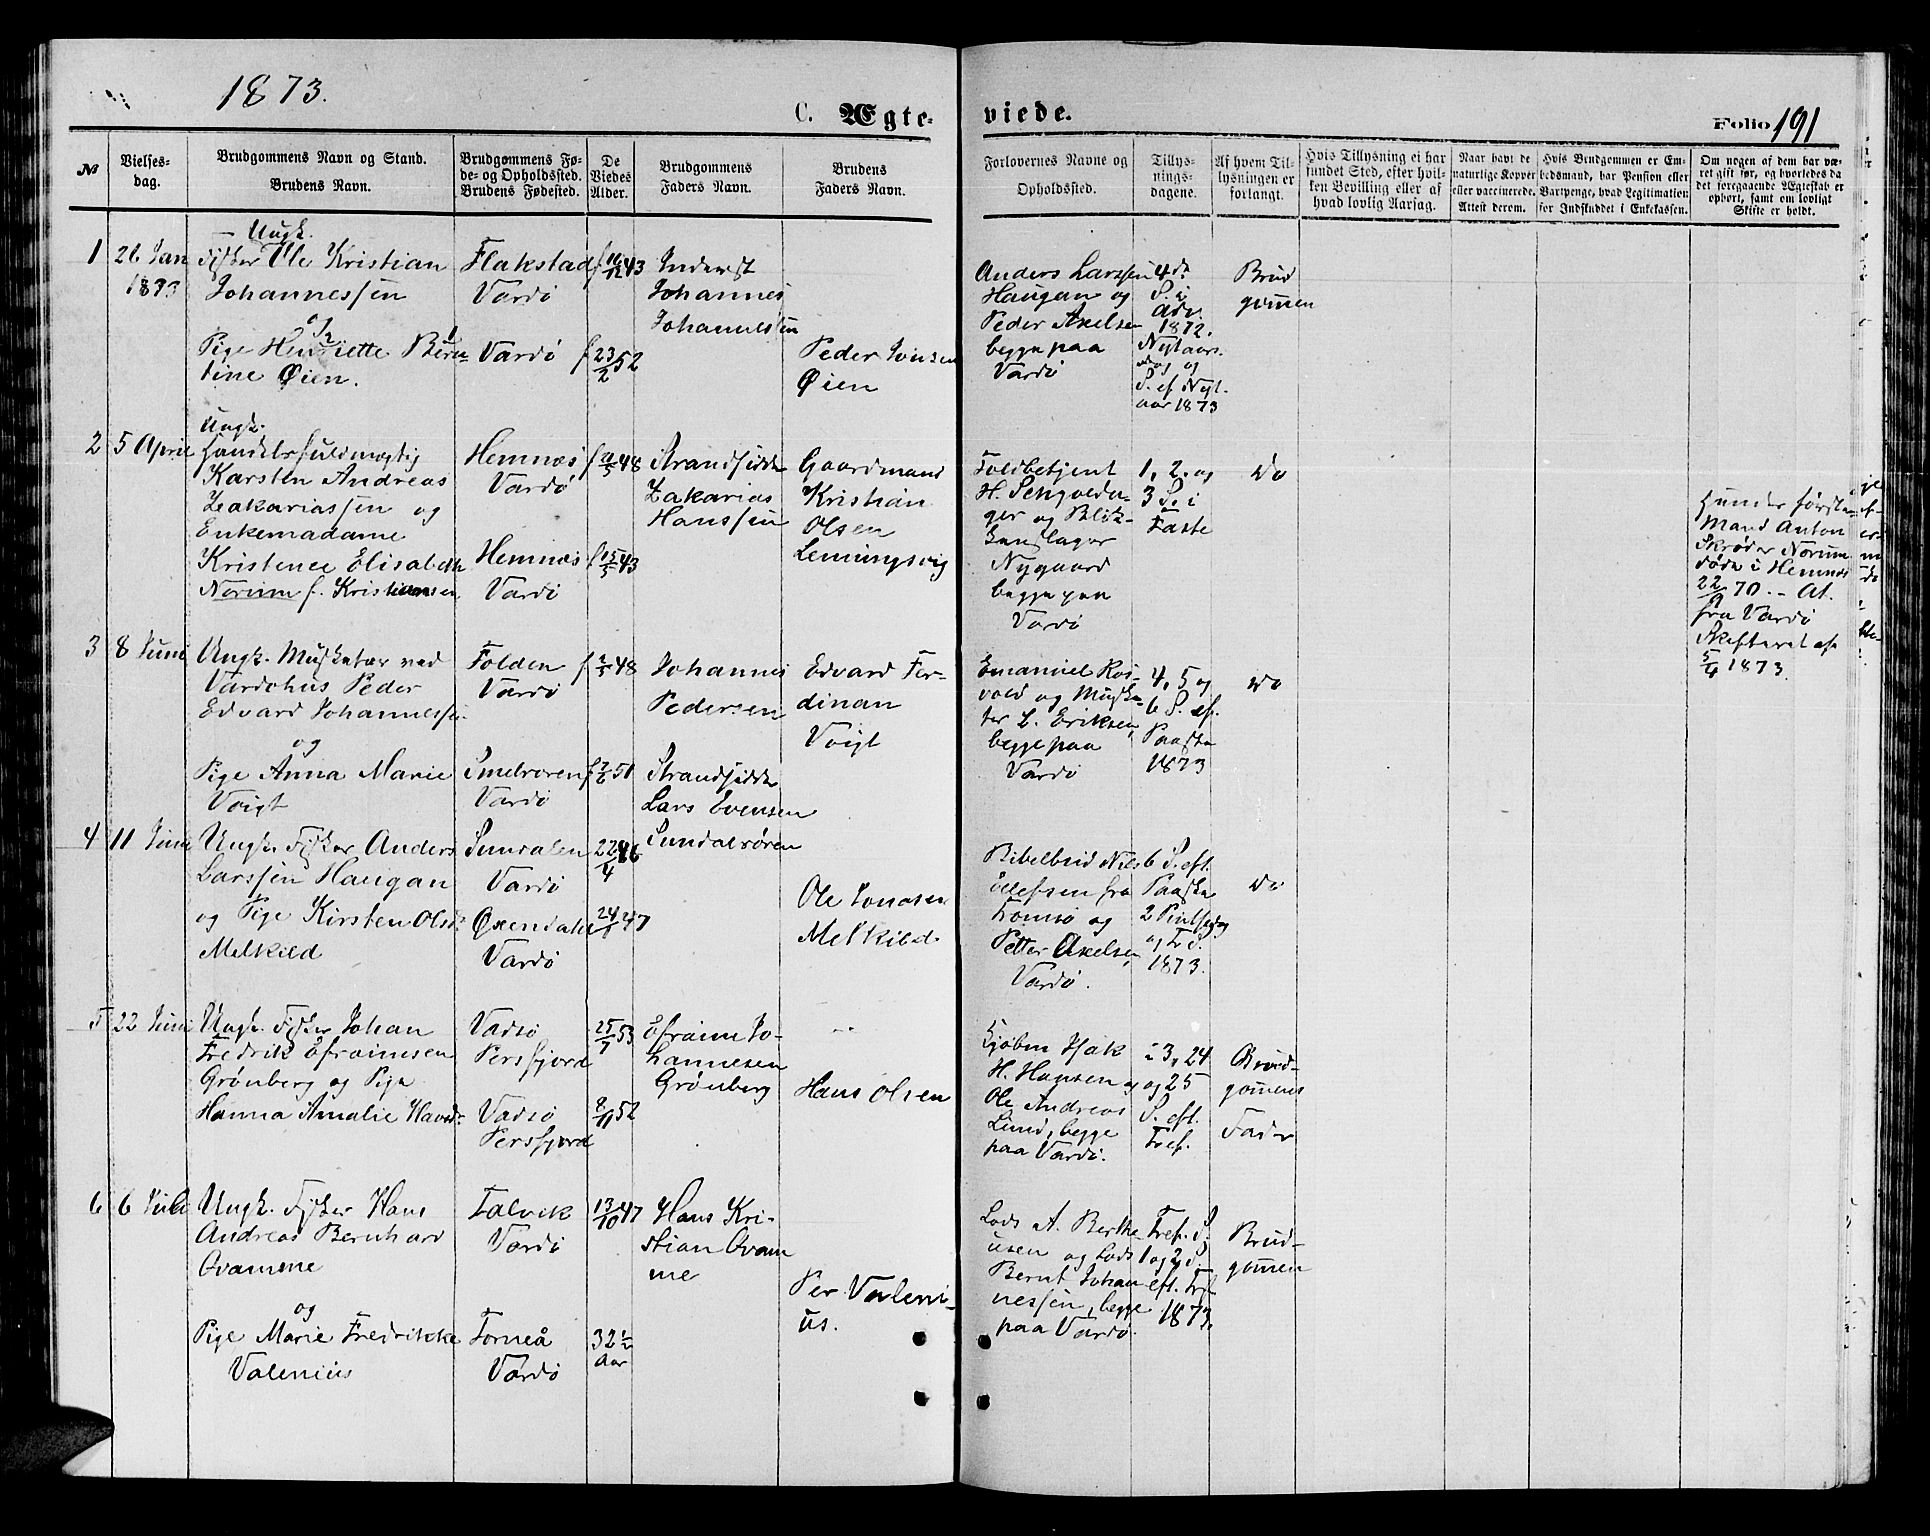 1873.
C. Ægte-
viede.
Folio 191
№
Vielses-
dag.
Brudgommens Navn og Stand.
Brudens Navn.
Brudgommens Fø-
de- og Opholdssted.
Brudens Fødested.
De
Viedes
Alder.
Brudgommens
Faders Navn.
Brudens
Faders Navn.
Forlovernes Navne og
Opholdssted.
Tillys-
nings-
dagene.
Af hvem Til-
lysningen er
forlangt.
Hvis Tillysning ei har
fundet Sted, efter hvil-
ken Bevilling eller af
hvad lovlig Aarsag.
Naar havt de
naturlige Kopper
eller vaccinerede.
Attest derom.
Hvis Brudgommen er Em-
bedsmand, har Pension eller
Vartpenge, hvad Legitimation
for Indskuddet i Enkekassen.
Om nogen af dem har væ-
ret gift før, og hvorledes da
det foregaaende Ægteskab er
ophørt, samt om lovligt
Skifte er holdt.
1
26 Jan
1873
Ungk.
Fisker Ole Kristian
Johannessen
og
Pige Henriette Bern-
tine Øien.
Flakstad
Vardö
Vardö
43
f 23/2 52
Inderst
Johannes
Johannessen
Peder Jonsen
Øien
Anders Larssen
Haugan og
Peder Axelsen
begge paa
Vardö
4de
S. i
Adv.
1872.
Nytaars-
dag og
S. ef. Nyt-
aar 1873
Brud
gommen
2
5 April
Ungk.
Handelsfuldmægtig
Karsten Andreas
Zakariassen og
Enkemadame
Kristence Elisabeth
Norum f. Kristiansen
Hemnæs
Vardö
Hemnæs
Vardö
48
f 15/5 43
Strandsidder
Zakarias
Hanssen
Gaardmand
Kristian
Olsen
Lemingsvig
Toldbetjent
H.
ger og Blik-
kenslager
Nygaard
begge paa
Vardö
1, 2, og
3 S. i
Faste
do
Hundes første
Mand Anton
Skröder Norum
döde i Hemnæs
22/9 70. - At.
fra Vardö
Skifteret af
5/4 1873.
3
8 Juni
Ungk. Musketer ved
Vardöhus Peder
Edvard Johannessen
og
Pige Anna Marie
Voigt
Folden
Vardö
Smelroren
Vardö
48
51
Johannes
Pedersen
Edvard Fer-
dinan
Voigt
Emanuel Ros-
vold og Muske-
ter L. Eriksen
begge paa
Vardö
4, 5 og
6 S. ef.
Paaske
1873
do
4
11 Juni
Ungk. Fisker Anders
Larssen Haugan
og Pige Kirsten Olsd.
Melkild
Sundalen
Vardö
Øxendalen
Vardö
22/4 46
47
Strandsidder
Lars Evensen
Sundalsören
Ole Jonasen
Melkild
Bibelbud Nils
Ellefsen fra
Tromsö og
Petter Axelsen
Vardö.
6 S. eft.
Paaske
2 Pintsedag
og Tr. S.
1873.
do
5
22 Juni
Ungk. Fisker Johan
Fredrik Efraimsen
Grönberg og Pige
Hanna Amalie Hansd.
Vadsö
Persfjord
Vadsö
Persfjord
25/7 53
8/11 52
Efraim Jo-
hannesen
Grönberg
Hans Olsen
Kjöbm Isak
H. Hansen og
Ole Andreas
Lund, begge
paa Vardö.
23, 24
og 25
S. eft.
Tref.
Brud-
gomens
Fader
6
6 Juli
Ungk. Fisker Hans
Andreas Bernhard
Ovamme
og
Pige Marie Fredrikke
Valenius
Talvik
Vardö
Torneå
Vardö
13/10 47
32 1/2
Aar
Hans Kri-
stian Ovam
me
Per Valeni-
us.
Lods A. Berthe
usen og Lods
Bernt Johan
nessen, begge
paa Vardö.
Tref. S.
1 og 2 S.
eft. Tref
1873.
Brud-
gomen